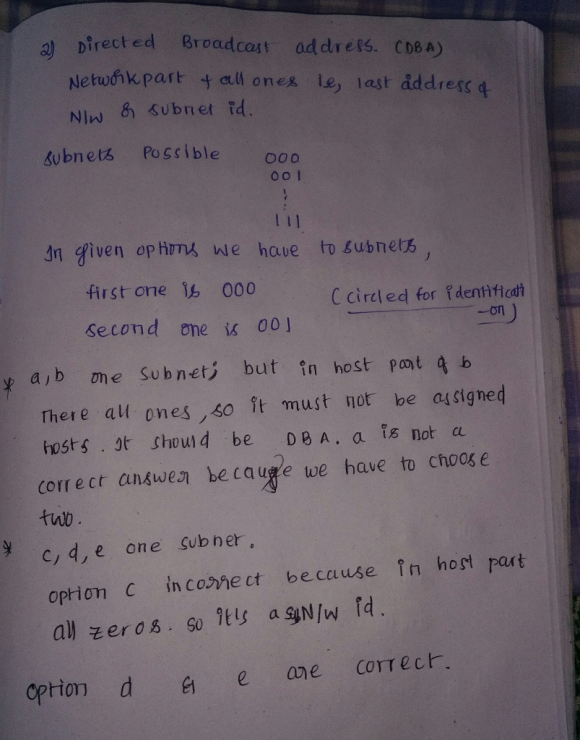 2) Directed Broadcast address. (DBA)
Network part + all ones ie, last address of
N/w & subnet id.
subnets Possible 000
001
111
In given options we have to subnets,
first one is 000 (circled for identificati
second one is 001 -on)
* a,b one subnet; but in host part of b
There all ones, so it must not be assigned
hosts. It should be DBA. a is not a
correct answer because we have to choose
two.
* c, d, e one subnet.
option c incorrect because in host part
all zeros. so it is a N/W id.
option d & e are correct.